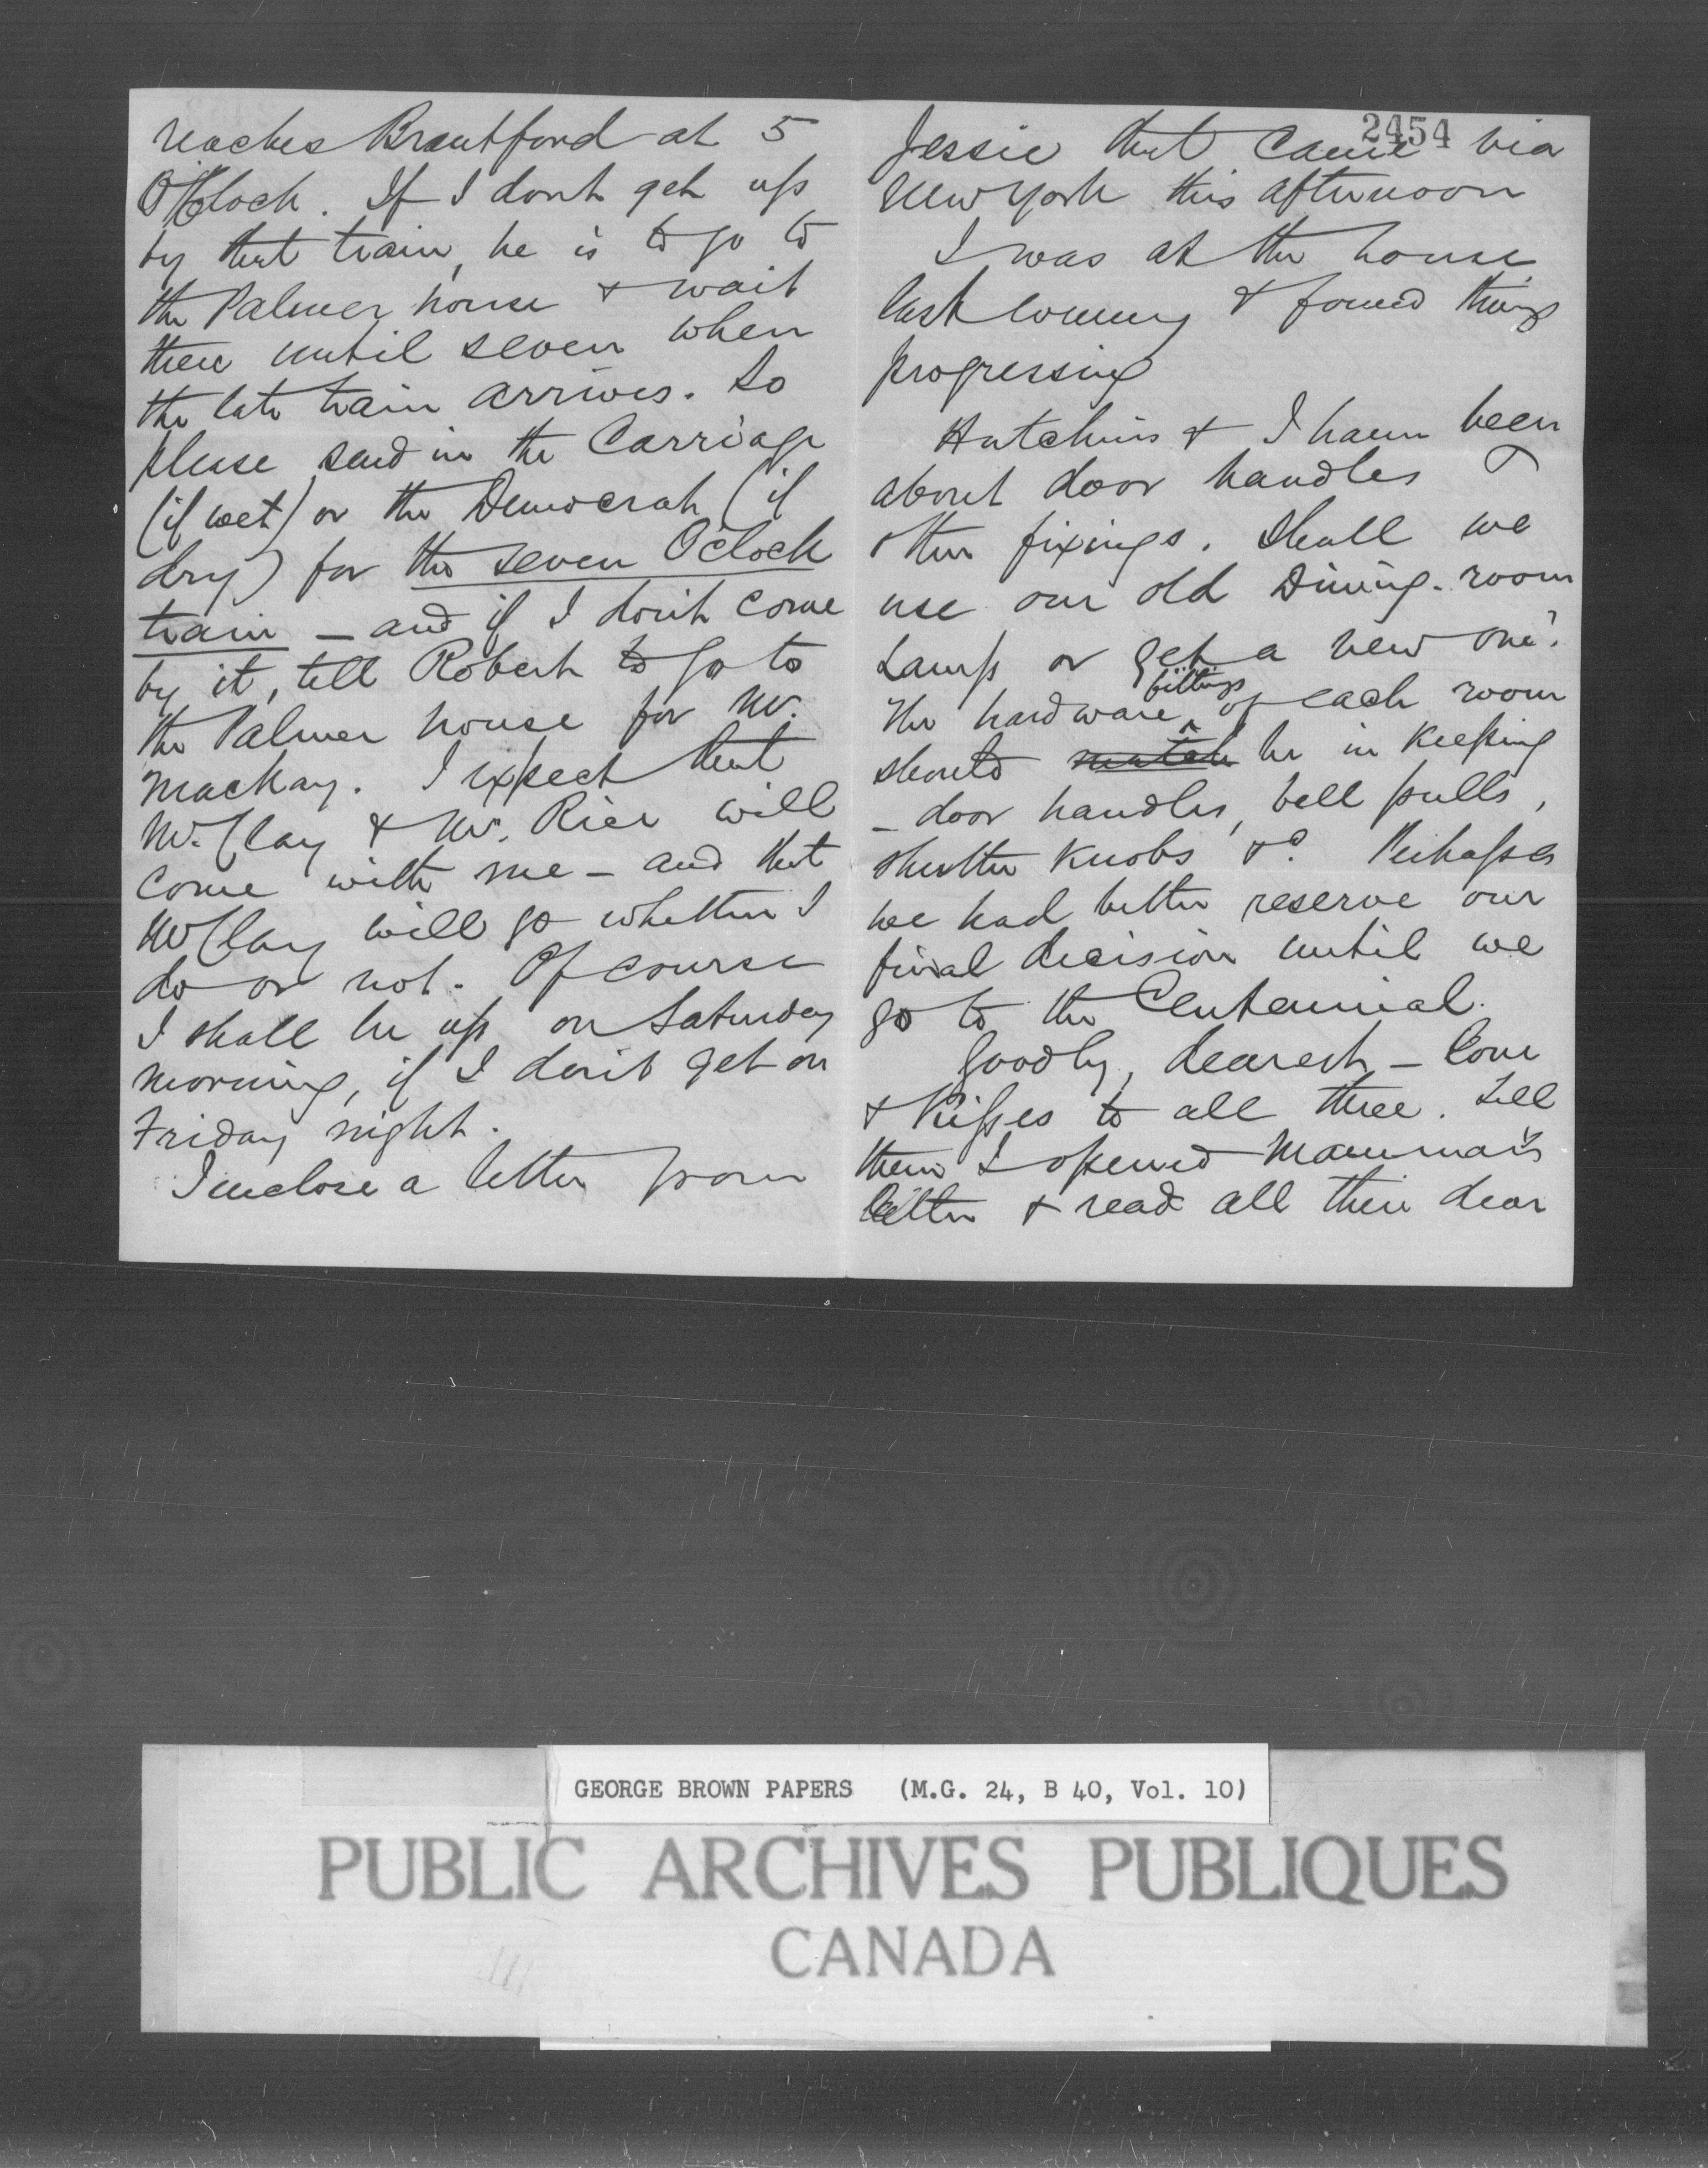 reaches Brantford at 5
O'Clock. If I dont get up
by that train, he is to go to
the Palmer house & wait
there until seven when
the late train arrives. So
please send in the Carriage
(if wet) or the Democrat (if
dry) for the seven O'Clock
train - and if I don't come
by it, tell Robert to go to
the Palmer house for Mr.
Mackay. I expect that
Mr. Clay & Mr. Rice will
come with me - and that
Mr Clay will go whether I
do or not. Of course
I shall be up on Saturday
morning, if I don't get on
Friday night.
I enclose a letter from
2454
Jessie that came via
New York this afternoon
I was at the house
last evening & found things
progressing
Hutchins & I have been
about door handles &
other fixings. Shall we
use our old Dining-room
Lamp or get a new one?
fittings
The hardware of each room
should match be in keeping
- door handles, bell pulls,
shutter knobs &c. Perhaps
we had better reserve our
final decision until we
go to the Centennial.
Goodby, dearest - love
& kisses to all three. Tell
them I opened Mamma's
letter & read all their dear
GEORGE BROWN PAPERS (M.G. 24, B 40, Vol. 10)
PUBLIC ARCHIVES PUBLIQUES
CANADA